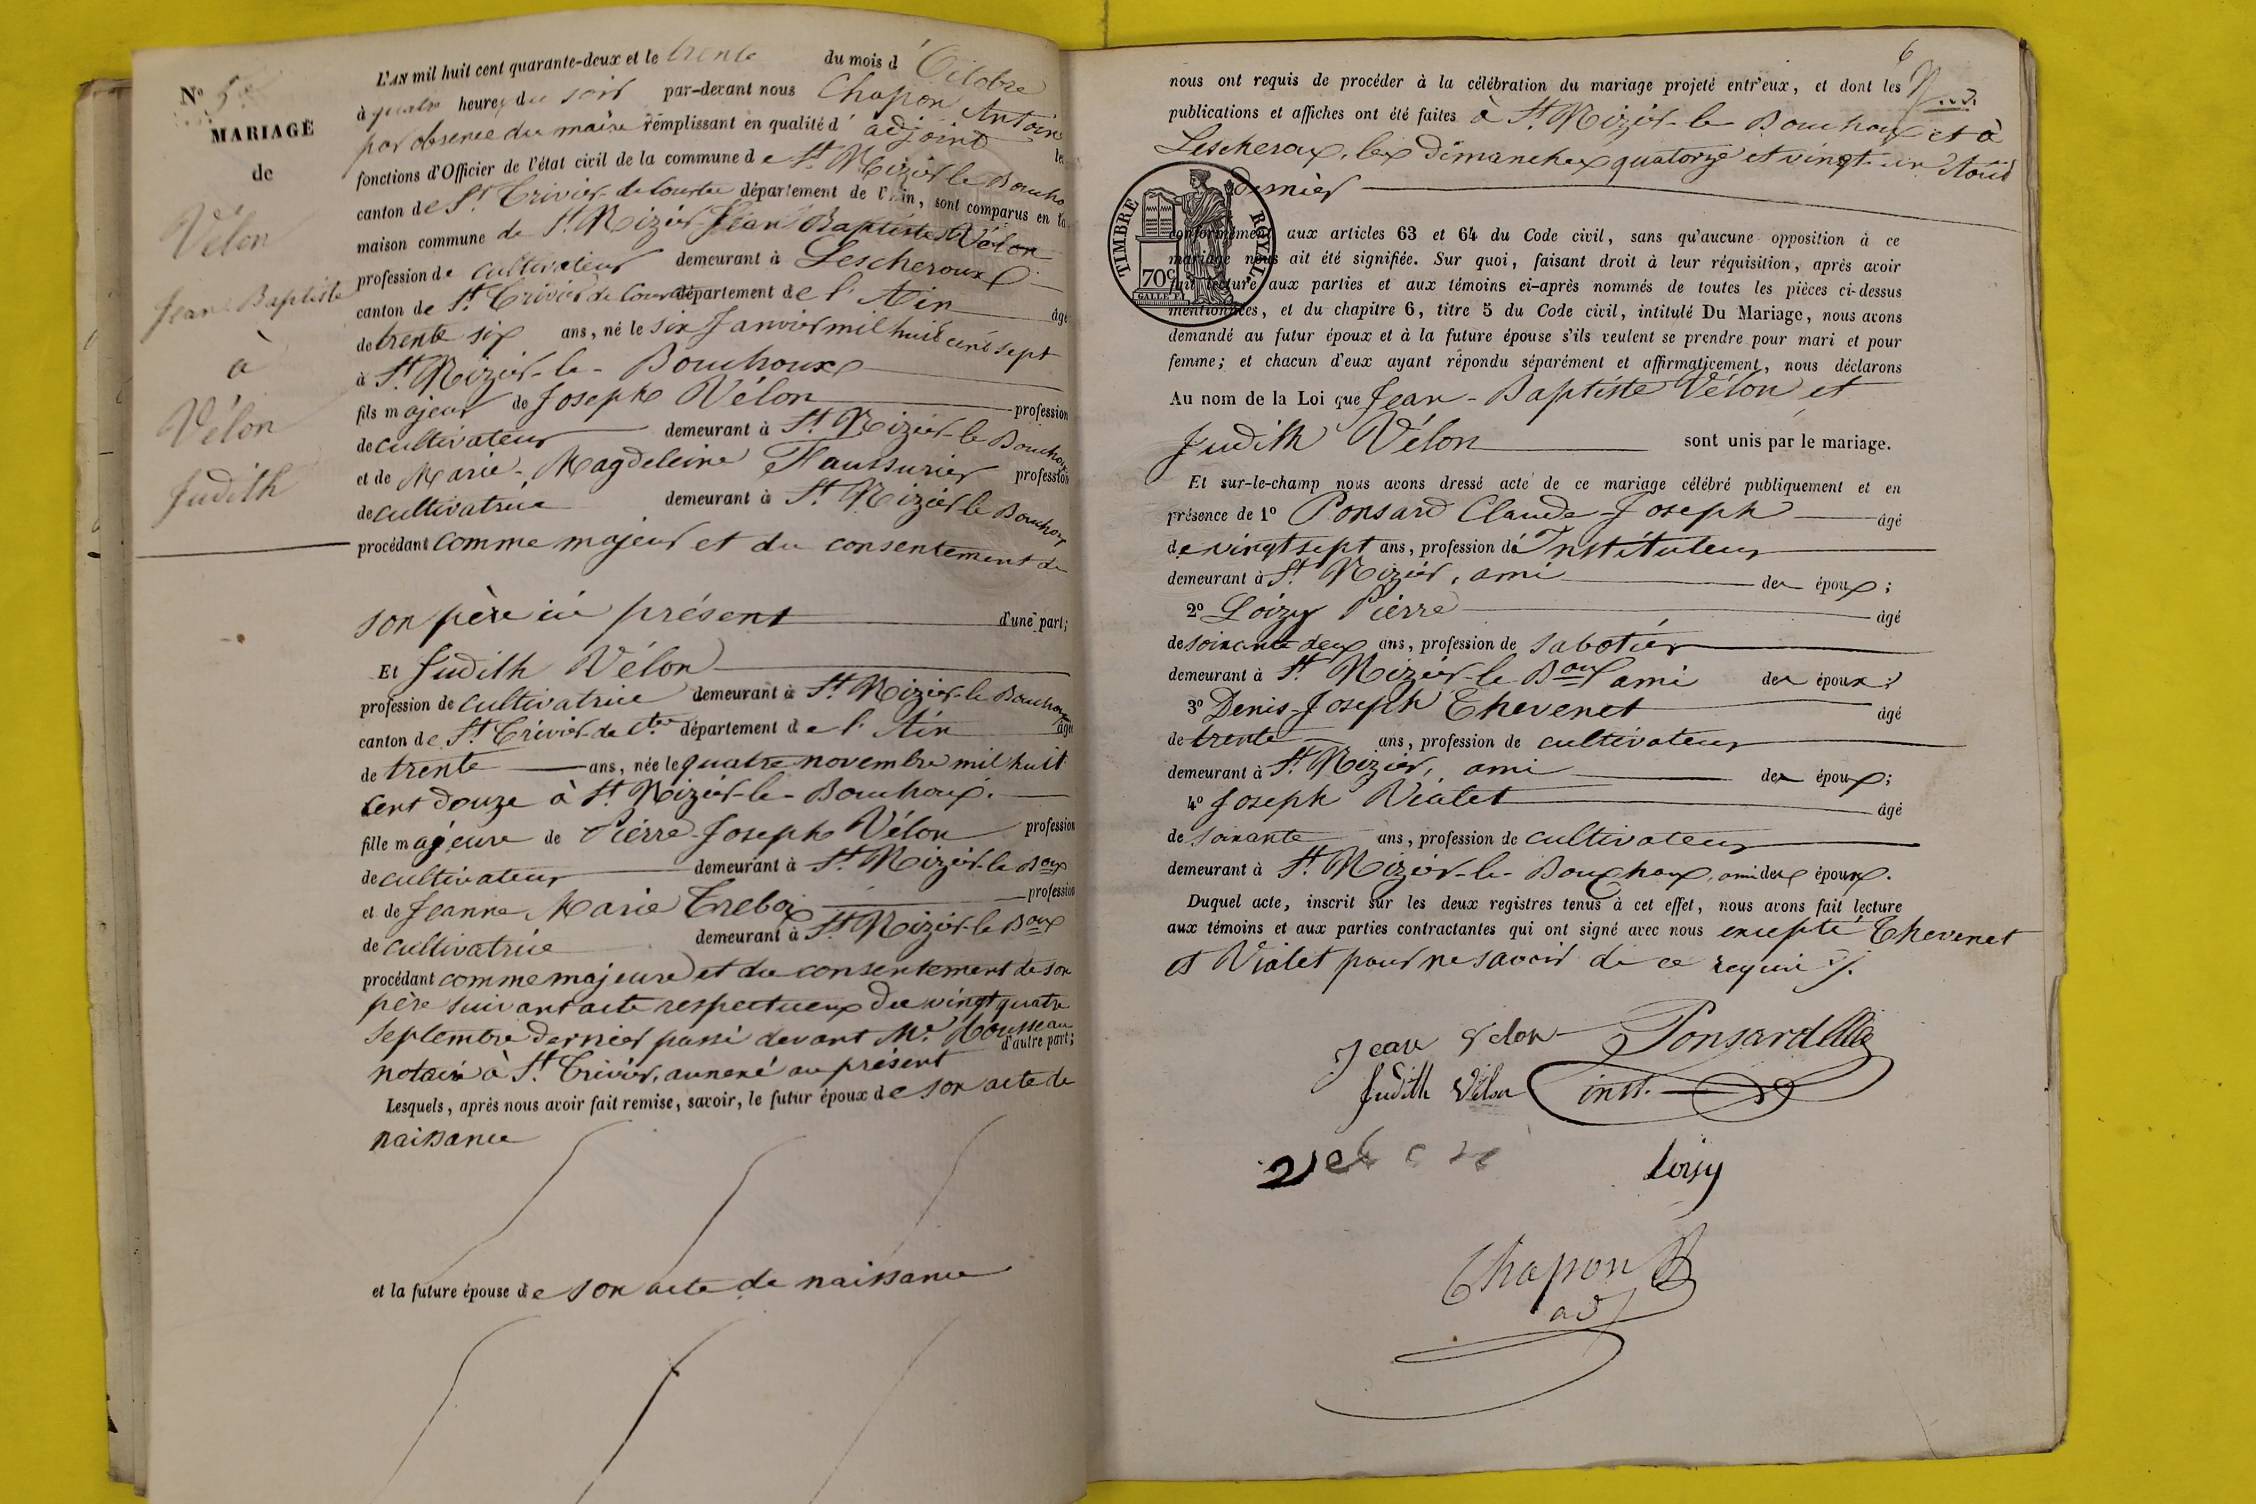 N° 5
MARIAGE
de
Vélon
Jean Baptiste
à
Vélon
Judith
L'AN mil huit cent quarante-deux et le trente du mois d'Octobre
à quatre heures du soir par-devant nous Chapon Antoine
par absence du maire remplissant en qualité d'adjoint les
fonctions d'Officier de l'état civil de la commune de St Nizier le Boucho
canton de St Trivier de Courtes département de l'Ain, sont comparus en la
maison commune de St Nizier Jean Baptiste Vélon
profession de cultivateur demeurant à Lescheroux
canton de St Trivier de Courtes département de l'Ain âgé
de trente six ans, né le six Janvier mil huit cent sept
à St Nizier-le-Bouchoux
fils majeur de Joseph Vélon profession
de cultivateur demeurant à St Nizier-le Bouchoux
et de Marie-Magdeleine Faussurier profession
de cultivatrice demeurant à St Nizier le Bouchoux
procédant comme majeur et du consentement de
son père ici présent d'une part;
Et Judith Vélon
profession de cultivatrice demeurant à St Nizier-le Bouchoux
canton de St Trivier de Ctes département de l'Ain âgée
de trente ans, née le quatre novembre mil huit
cent douze à St Nizier-le-Bouchoux.
fille majeure de Pierre-Joseph Vélon profession
de cultivateur demeurant à St Nizier-le Boux
et de Jeanne Marie Treboz profession
de cultivatrice demeurant à St Nizier-le Boux
procédant comme majeure et du consentement de son
père suivant acte respectueux du vingt quatre
septembre dernier passé devant Me Mousseau
d'autre part;
notaire à St Trivier, annexé au présent
Lesquels, après nous avoir fait remise, savoir, le futur époux de son acte de
naissance
et la future épouse de son acte de naissance
6
nous ont requis de procéder à la célébration du mariage projeté entr'eux, et dont les
publications et affiches ont été faites à St Nizier-le Bouchoux et à
Lescheroux, les dimanches quatorze et vingt-un Août
dernier
TIMBRE ROYAL
70c
conformément aux articles 63 et 64 du Code civil, sans qu'aucune opposition à ce
mariage nous ait été signifiée. Sur quoi, faisant droit à leur réquisition, après avoir
fait lecture aux parties et aux témoins ci-après nommés de toutes les pièces ci-dessus
mentionnées, et du chapitre 6, titre 5 du Code civil, intitulé Du Mariage, nous avons
demandé au futur époux et à la future épouse s'ils veulent se prendre pour mari et pour
femme; et chacun d'eux ayant répondu séparément et affirmativement, nous déclarons
Au nom de la Loi que Jean-Baptiste Vélon et
Judith Vélon sont unis par le mariage.
Et sur-le-champ nous avons dressé acte de ce mariage célébré publiquement et en
présence de 1° Ponsard Claude-Joseph âgé
de vingt sept ans, profession d'Instituteur
demeurant à St Nizier, ami des époux;
2° Loizy Pierre âgé
de soixante deux ans, profession de sabotier
demeurant à St Nizier-le-Boux ami des époux;
3° Denis-Joseph Thevenet âgé
de trente ans, profession de cultivateur
demeurant à St Nizier, ami des époux;
4° Joseph Vialet âgé
de soixante ans, profession de cultivateur
demeurant à St Nizier-le-Bouchoux, ami des époux.
Duquel acte, inscrit sur les deux registres tenus à cet effet, nous avons fait lecture
aux témoins et aux parties contractantes qui ont signé avec nous excepté Thevenet
et Vialet pour ne savoir de ce requis
Jean Velon Ponsard
Judith Vélon inst.
Velon Loisy
Chapon
adj